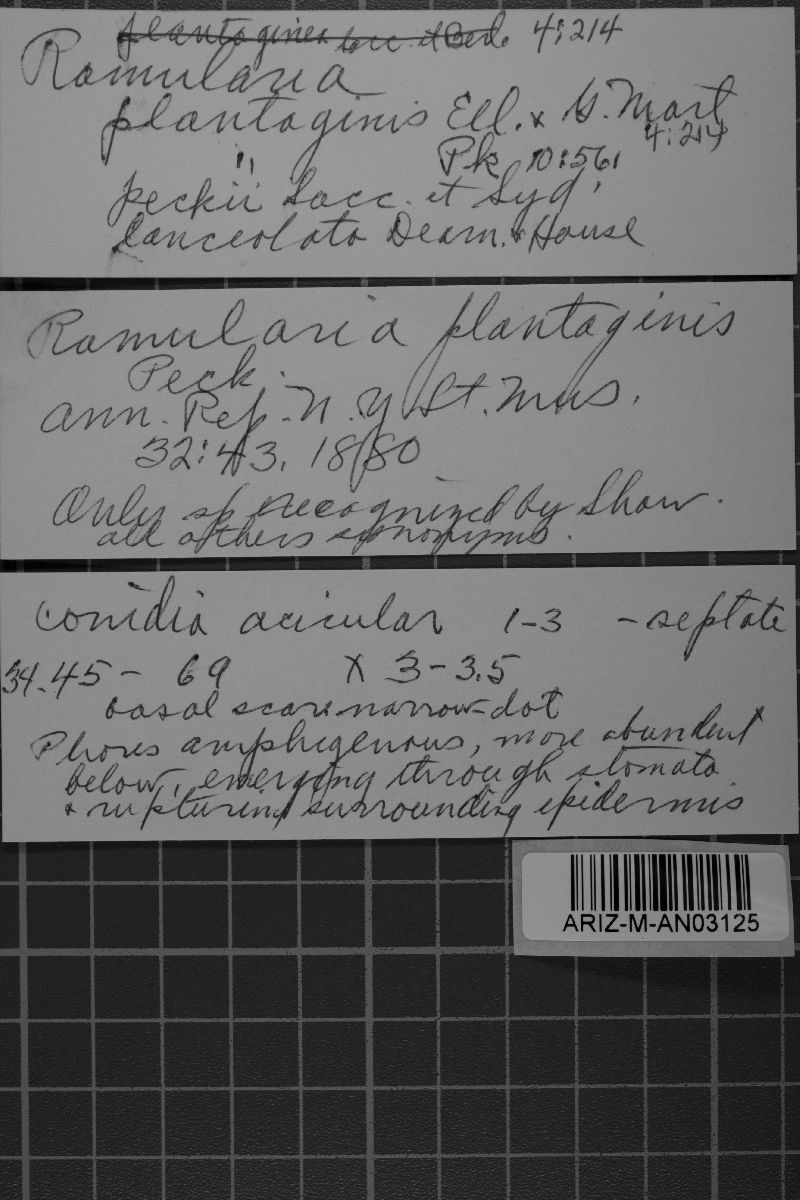 plantaginea Sacc. et Berl. 4:214
Ramularia
plantaginis Ell. & G. Mart
4:214
" Pk 10:561
peckii Sacc. et Syd.
lanceolata Dearn. & House
Ramularia plantaginis
Peck.
Ann. Rep. N.Y. St. Mus.
32:43. 1880
Only sp recognized by Shaw.
all others synonyms.
Conidia acicular 1-3 -septate
34.45 - 69 X 3-3.5
basal scars narrow-dot
Phores amphigenous, more abundent
below, emerging through stomata
& rupturing surrounding epidermis
ARIZ-M-AN03125